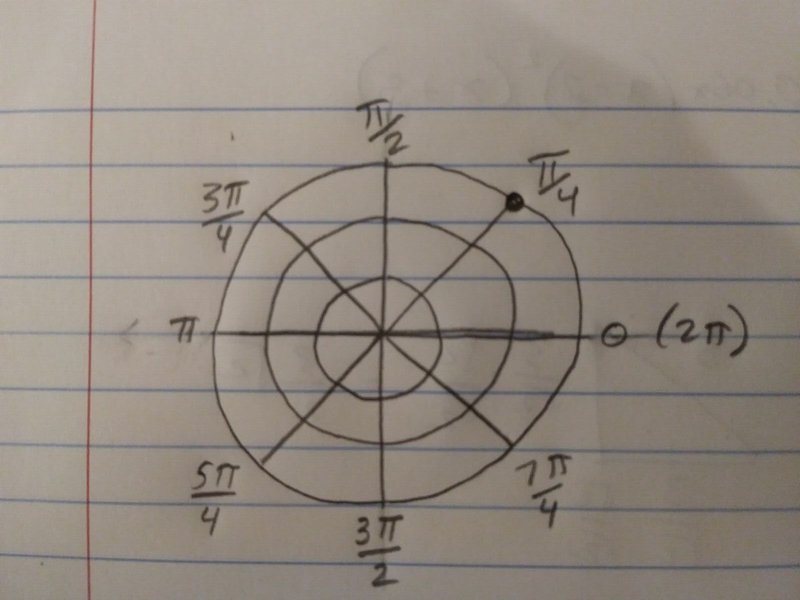 π/2
π/4
3π/4
π
θ (2π)
5π/4
7π/4
3π/2